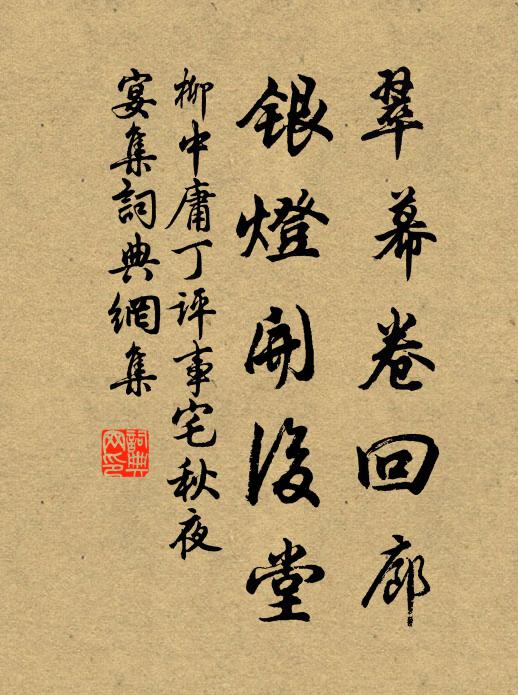 翠幕卷回廊
銀燈開後堂
柳中庸丁評事宅秋夜
宴集詞典網集
詞典網印